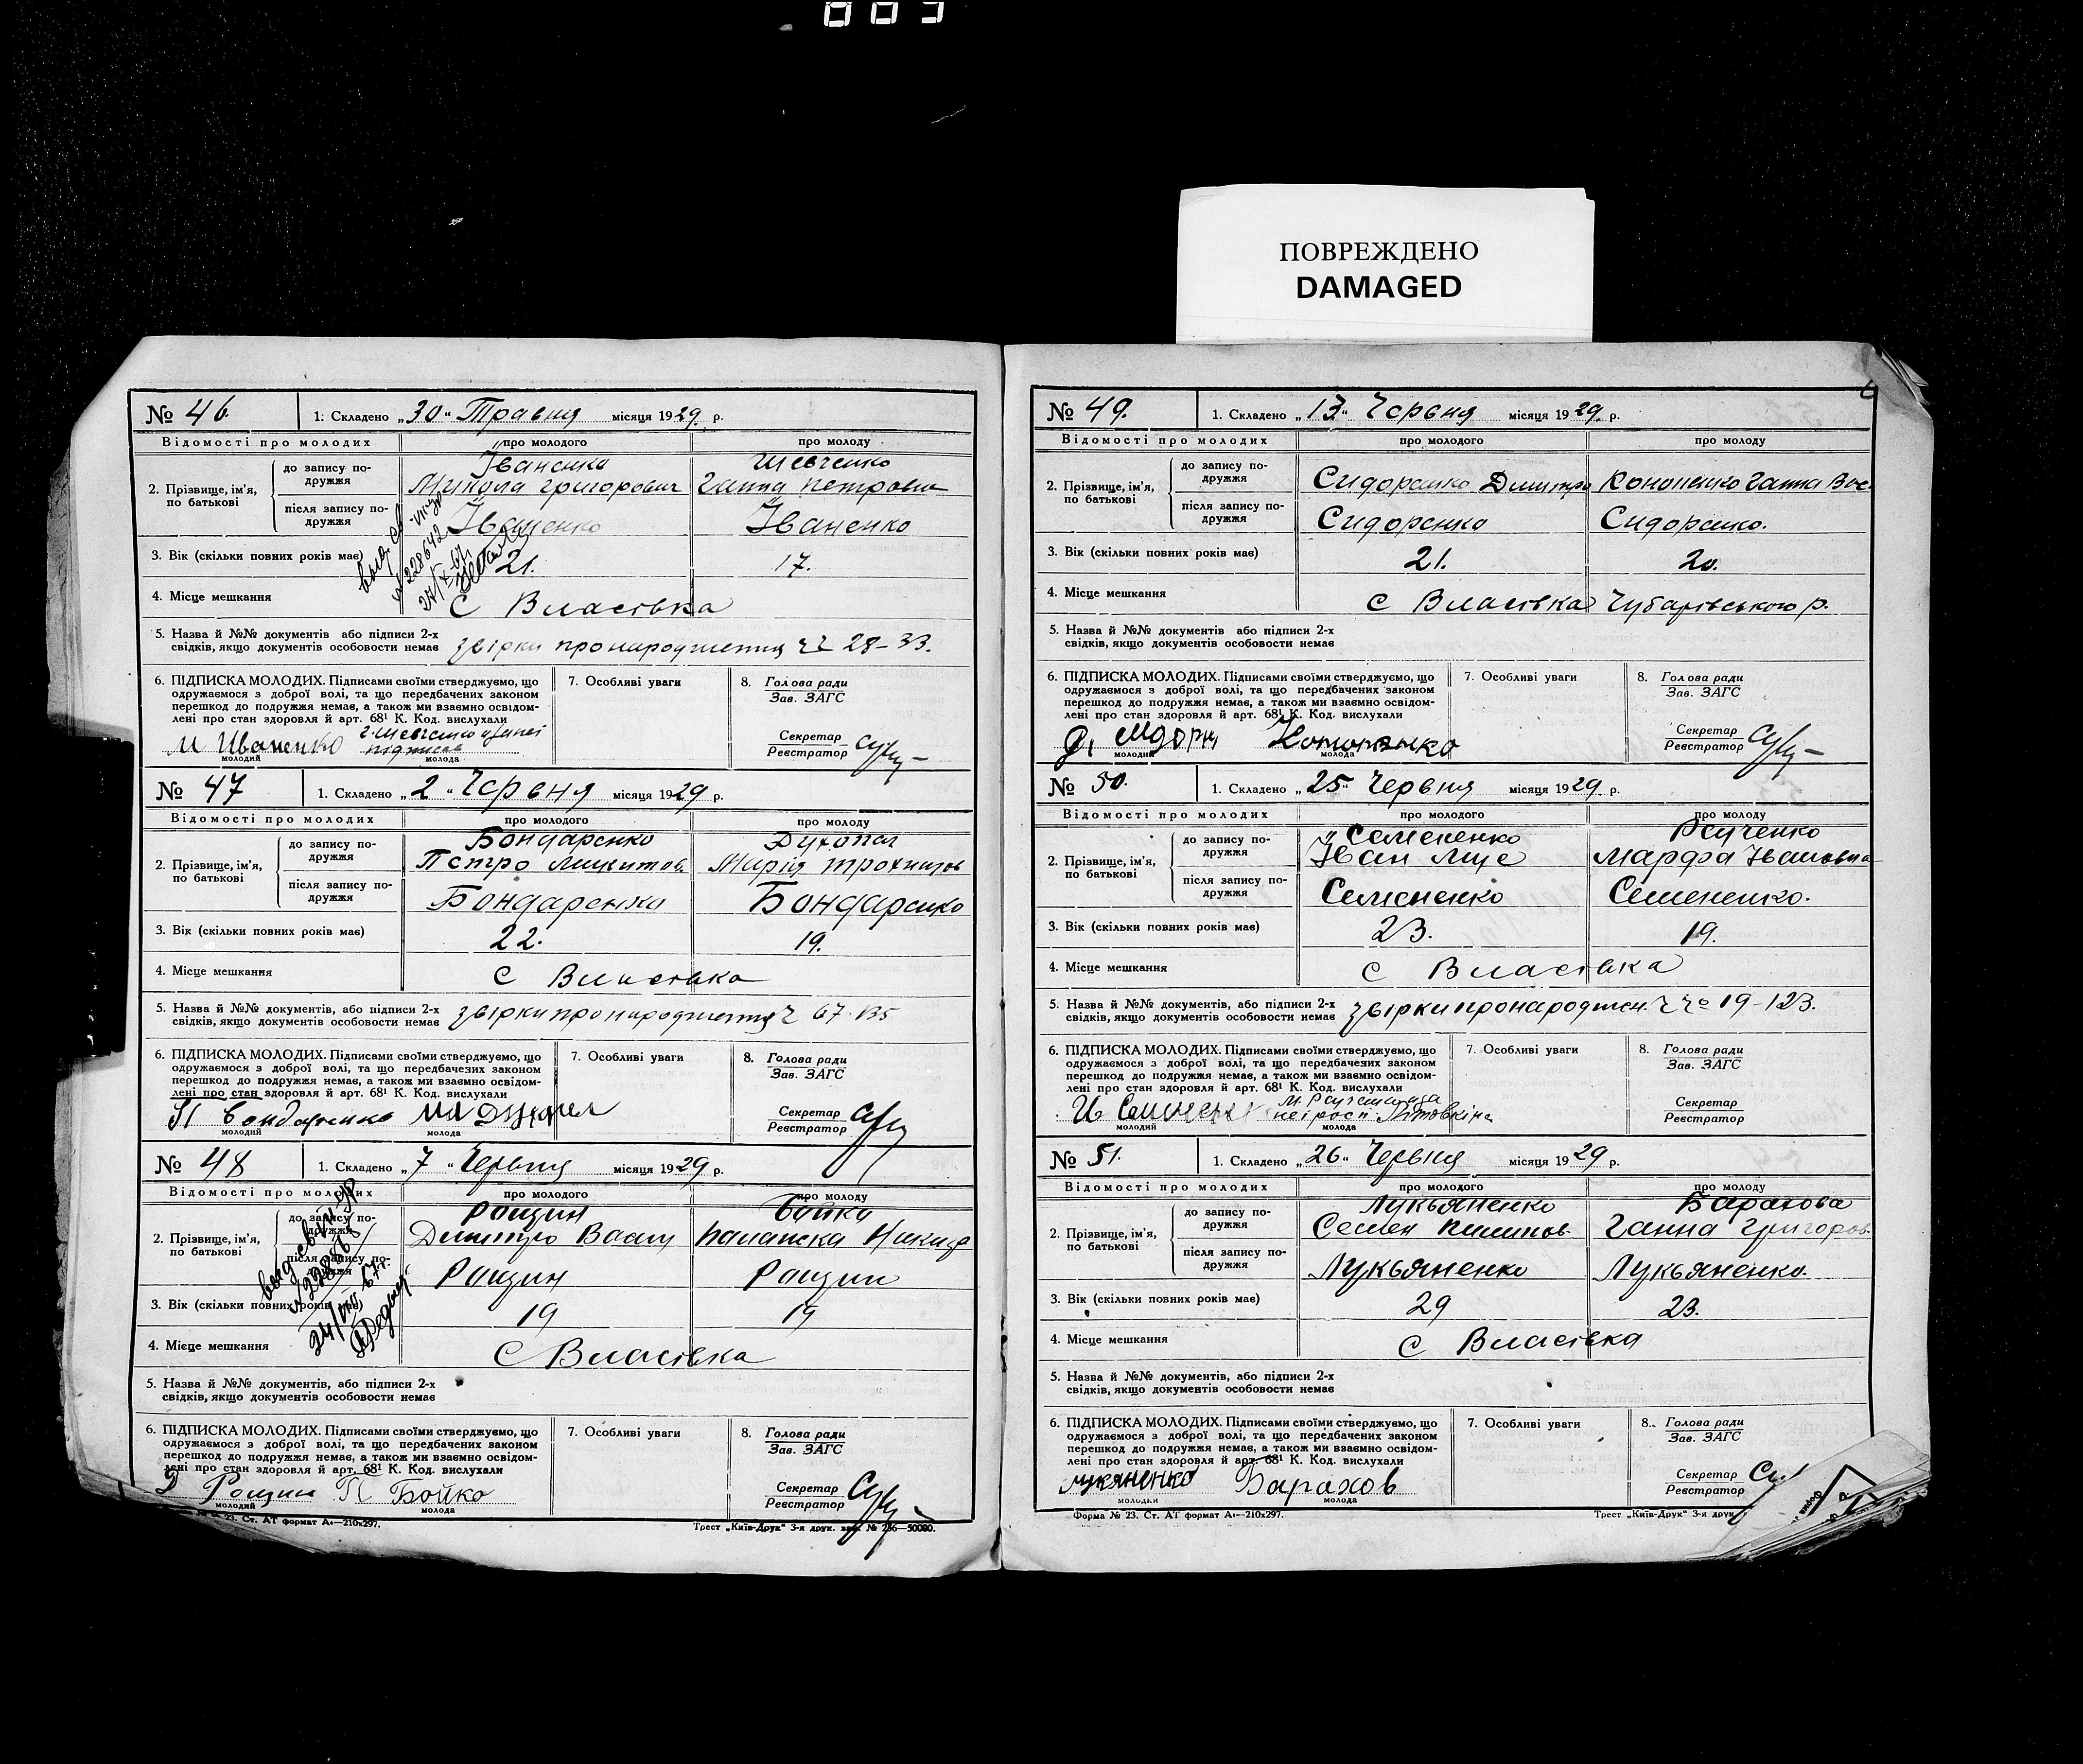 003
ПОВРЕЖДЕНО
DAMAGED
№ 46. 1. Складено „30“ Травня місяця 1929. р.
Відомості про молодих про молодого про молоду
2. Прізвище, ім'я, по батькові
до запису по-дружжя Іваненко Микола Григорович Шевченко Ганна Петровна
після запису по-дружжя Іваненко Іваненко
3. Вік (скільки повних років має) 21. 17.
4. Місце мешкання С Власівка
5. Назва й №№ документів або підписи 2-х
свідків, якщо документів особовости немає звірки про народження 28-33.
6. ПІДПИСКА МОЛОДИХ. Підписами своїми стверджуємо, що
одружаємося з доброї волі, та що передбачених законом
перешкод до подружжя немає, а також ми взаємно освідом-
лені про стан здоровля й арт. 68¹ К. Код. вислухали
М Иваненко
молодий молода
7. Особливі уваги
8. Голова ради
Зав. ЗАГС
Секретар
Реєстратор
№ 47 1. Складено „2“ Червня місяця 1929 р.
Відомості про молодих про молодого про молоду
2. Прізвище, ім'я, по батькові
до запису по-дружжя Бондаренко Петро Микитов. Марія
після запису по-дружжя Бондаренко Бондаренко
3. Вік (скільки повних років має) 22. 19.
4. Місце мешкання с Власівка
5. Назва й №№ документів, або підписи 2-х
свідків, якщо документів особовости немає звірки про народження Ч 67
6. ПІДПИСКА МОЛОДИХ. Підписами своїми стверджуємо, що
одружаємося з доброї волі, та що передбачених законом
перешкод до подружжя немає, а також ми взаємно освідом-
лені про стан здоровля й арт. 68¹ К. Код. вислухали
П Бондаренко
молодий молода
7. Особливі уваги
8. Голова ради
Зав. ЗАГС
Секретар
Реєстратор
№ 48 1. Складено „7“ Червня місяця 1929 р.
Відомості про молодих про молодого про молоду
2. Прізвище, ім'я, по батькові
до запису по-дружжя Рощин Дмитро Васил Бойко
після запису по-дружжя Рощин Рощин
3. Вік (скільки повних років має) 19 19
4. Місце мешкання С Власівка
5. Назва й №№ документів, або підписи 2-х
свідків, якщо документів особовости немає
6. ПІДПИСКА МОЛОДИХ. Підписами своїми стверджуємо, що
одружаємося з доброї волі, та що передбачених законом
перешкод до подружжя немає, а також ми взаємно освідом-
лені про стан здоровля й арт. 68¹ К. Код. вислухали
Рощин П Бойко
молодий молода
7. Особливі уваги
8. Голова ради
Зав. ЗАГС
Секретар
Реєстратор
№ 23. Ст. АТ формат А₄—210х297.
Трест „Київ-Друк“ 3-я друк.
№ 49. 1. Складено „13“ Червня місяця 1929. р.
Відомості про молодих про молодого про молоду
2. Прізвище, ім'я, по батькові
до запису по-дружжя Сидоренко Дмитро Кононенко Ганна Вас.
після запису по-дружжя Сидоренко Сидоренко.
3. Вік (скільки повних років має) 21. 20.
4. Місце мешкання с Власівка Чубарівського р.
5. Назва й №№ документів або підписи 2-х
свідків, якщо документів особовости немає
6. ПІДПИСКА МОЛОДИХ. Підписами своїми стверджуємо, що
одружаємося з доброї волі, та що передбачених законом
перешкод до подружжя немає, а також ми взаємно освідом-
лені про стан здоровля й арт. 68¹ К. Код. вислухали
Кононенко
молодий молода
7. Особливі уваги
8. Голова ради
Зав. ЗАГС
Секретар
Реєстратор
№ 50. 1. Складено „25“ Червня місяця 1929. р.
Відомості про молодих про молодого про молоду
2. Прізвище, ім'я, по батькові
до запису по-дружжя Семененко Іван Марфа Івановна
після запису по-дружжя Семененко Семененко.
3. Вік (скільки повних років має) 23. 19.
4. Місце мешкання с Власівка
5. Назва й №№ документів, або підписи 2-х
свідків, якщо документів особовости немає звірки про народжен. 19-123.
6. ПІДПИСКА МОЛОДИХ. Підписами своїми стверджуємо, що
одружаємося з доброї волі, та що передбачених законом
перешкод до подружжя немає, а також ми взаємно освідом-
лені про стан здоровля й арт. 68¹ К. Код. вислухали
молодий молода
7. Особливі уваги
8. Голова ради
Зав. ЗАГС
Секретар
Реєстратор
№ 51. 1. Складено „26“ Червня місяця 1929 р.
Відомості про молодих про молодого про молоду
2. Прізвище, ім'я, по батькові
до запису по-дружжя Лукьяненко Семен Пилипов. Барахова Ганна Григоров.
після запису по-дружжя Лукьяненко Лукьяненко.
3. Вік (скільки повних років має) 29 23.
4. Місце мешкання с Власівка
5. Назва й №№ документів, або підписи 2-х
свідків, якщо документів особовости немає
6. ПІДПИСКА МОЛОДИХ. Підписами своїми стверджуємо, що
одружаємося з доброї волі, та що передбачених законом
перешкод до подружжя немає, а також ми взаємно освідом-
лені про стан здоровля й арт. 68¹ К. Код. вислухали
Лукяненко Барахов
молодки молода
7. Особливі уваги
8. Голова ради
Зав. ЗАГС
Секретар
Реєстратор
Форма № 23. Ст. АТ формат А₄—210х297.
Трест „Київ-Друк“ 3-я друк.